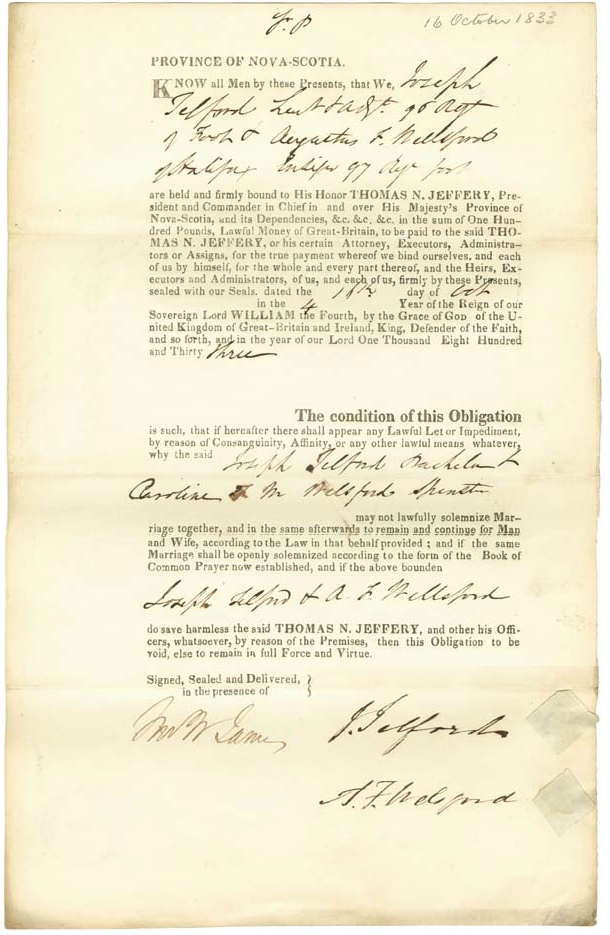 16 October 1833
PROVINCE OF NOVA-SCOTIA.
KNOW all Men by these Presents, that We, Joseph
Telford Lieut & Adjt. 96 Regt
of Foot & Augustus F. Wellsford
of Halifax Ensign 97 Regt foot
are held and firmly bound to His Honor THOMAS N. JEFFERY, Pre-
sident and Commander in Chief in and over His Majesty's Province of
Nova-Scotia, and its Dependencies, &c. &c. &c. in the sum of One Hun-
dred Pounds, Lawful Money of Great-Britain, to be paid to the said THO-
MAS N. JEFFERY, or his certain Attorney, Executors, Administra-
tors or Assigns, for the true payment whereof we bind ourselves, and each
of us by himself, for the whole and every part thereof, and the Heirs, Ex-
ecutors and Administrators, of us, and each of us, firmly by these Presents,
sealed with our Seals. dated the 16th day of Oct
in the 4 Year of the Reign of our
Sovereign Lord WILLIAM the Fourth, by the Grace of GOD of the U-
nited Kingdom of Great-Britain and Ireland, King, Defender of the Faith,
and so forth, and in the year of our Lord One Thousand Eight Hundred
and Thirty three
The condition of this Obligation
is such, that if hereafter there shall appear any Lawful Let or Impediment,
by reason of Consanguinity, Affinity, or any other lawful means whatever,
why the said Joseph Telford Bachelor &
Caroline M Welsford Spinster
may not lawfully solemnize Mar-
riage together, and in the same afterwards to remain and continue for Man
and Wife, according to the Law in that behalf provided ; and if the same
Marriage shall be openly solemnized according to the form of the Book of
Common Prayer now established, and if the above bounden
Joseph Telford & A. F. Wellsford
do save harmless the said THOMAS N. JEFFERY, and other his Offi-
cers, whatsoever, by reason of the Premises, then this Obligation to be
void, else to remain in full Force and Virtue.
Signed, Sealed and Delivered, }
in the presence of }
W James
J. Telford
A. F. Welsford